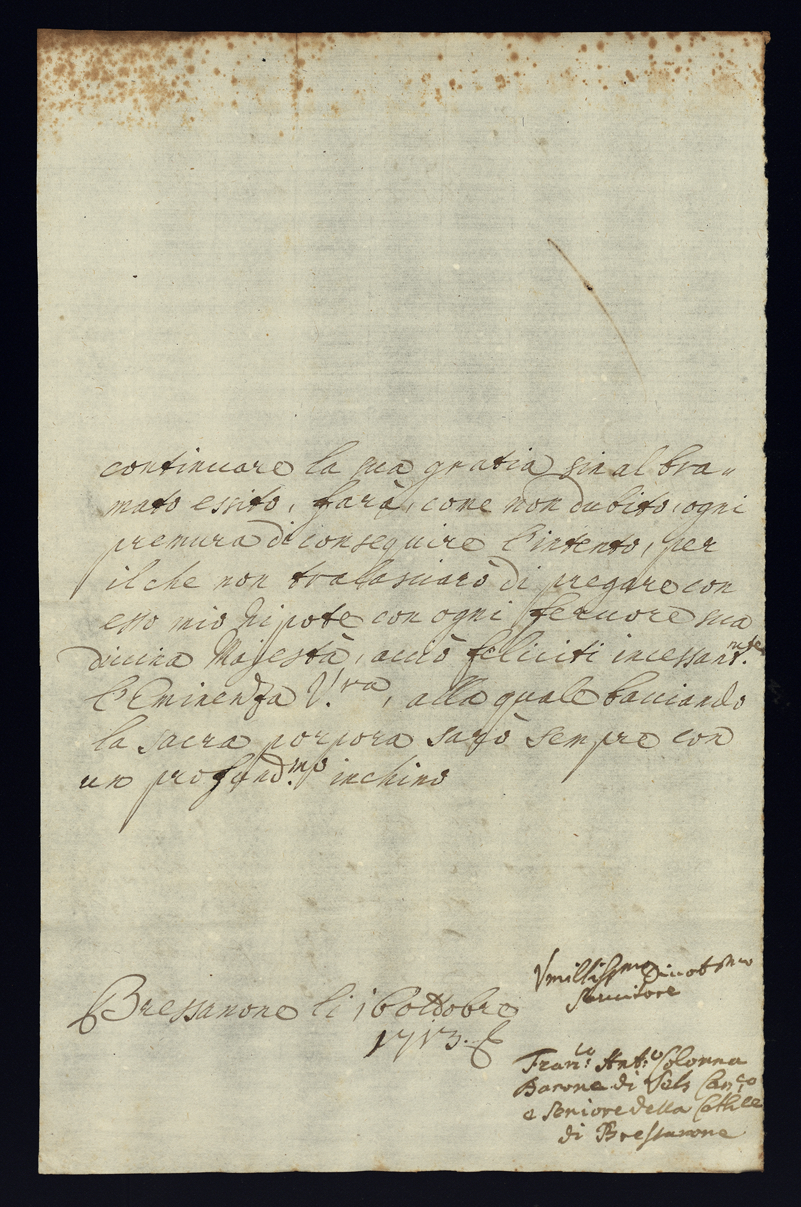 continuare la sua gratia sin al bra„
mato essito, farà, come non dubito, ogni
premura di conseguire l'intento, per
il che non tralasciarò di pregare con
esso mio Nipote con ogni feruore sua
diuina Majestà, acciò feliciti incessant.mte
l'Eminenza V.ra, alla quale bacciando
la sacra porpora sarò sempre con
un profond.mo inchino
Vmilissmo Diuotsmo
Seruitore
Bressanone li 16 ottobre
1713.
Franc.co Ant.o Colonna
Barone di Vels Can.co
e Seniore della Cathle
di Bressanone